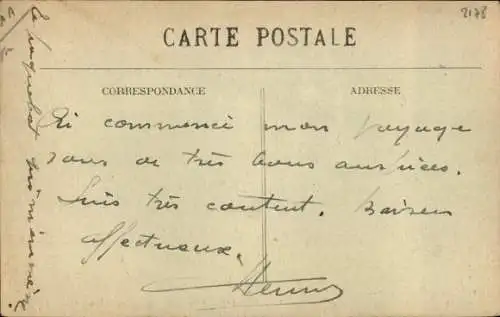 2178
CARTE POSTALE
CORRESPONDANCE
ADRESSE
Ai commencé mon voyage
sous de très bons auspices.
Suis très content. Baisers
affectueux.
Henri
Le paquebot qui m'emmène.